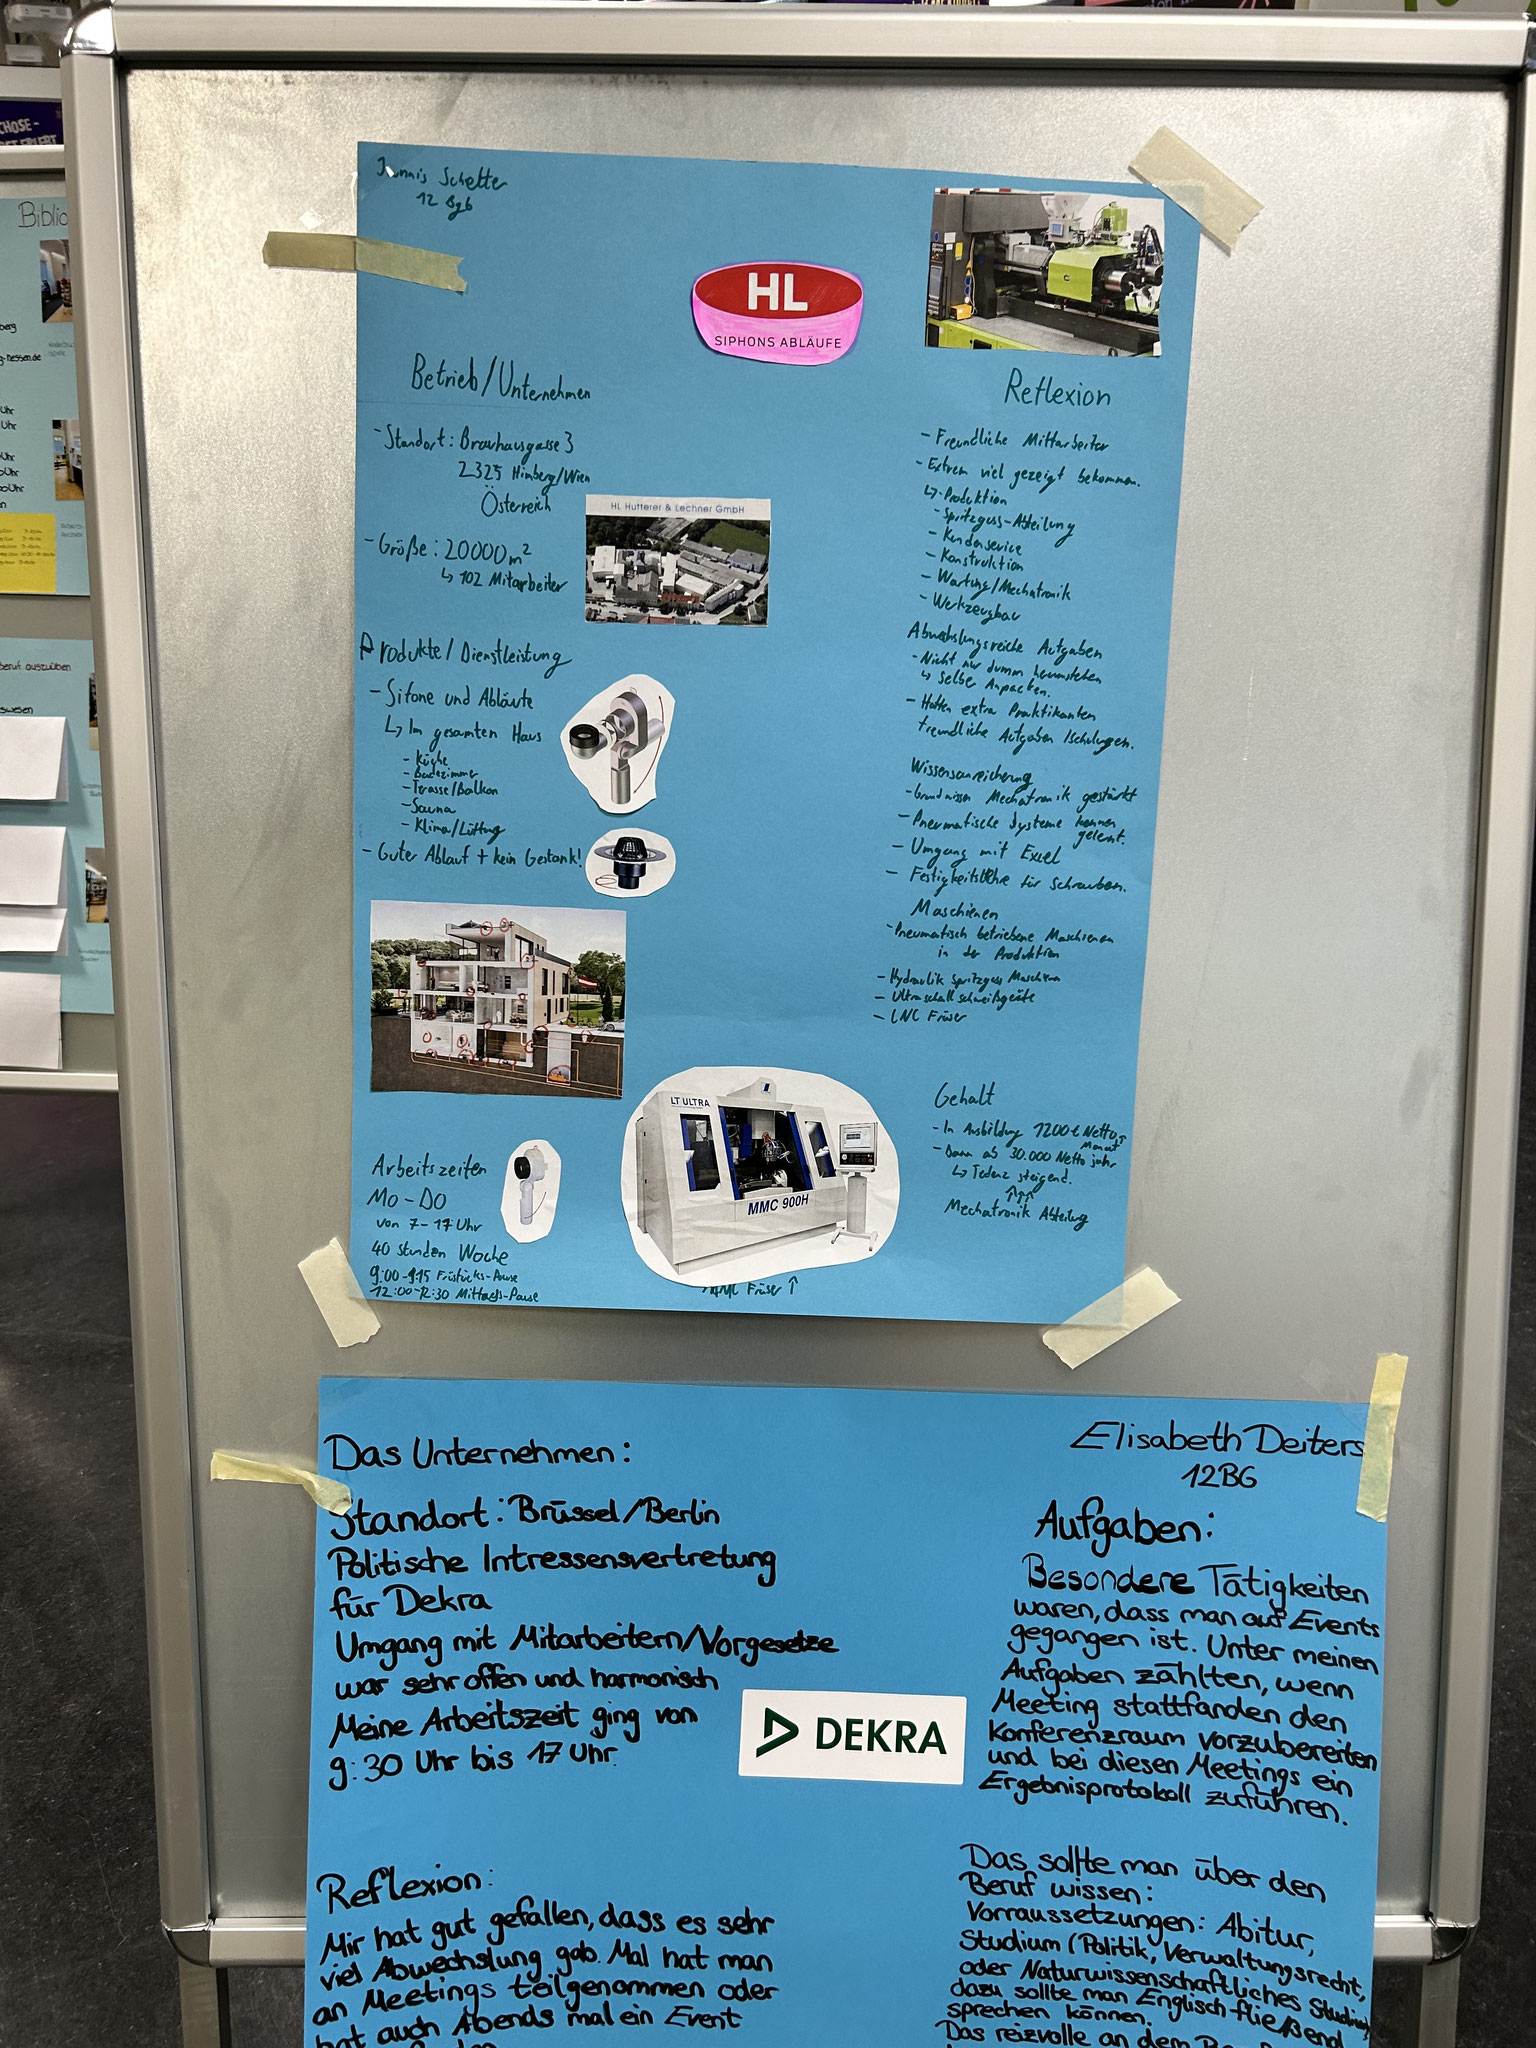 Jannis Schelter
12 Bgb
HL
SIPHONS ABLÄUFE
Betrieb/Unternehmen
- Standort: Brauhausgasse 3
2325 Himberg/Wien
Österreich
HL Hutterer & Lechner GmbH
- Größe: 20000m²
↳ 102 Mitarbeiter
Produkte/Dienstleistung
- Sifone und Abläufe
↳ Im gesamten Haus
- Küche
- Badezimmer
- Terasse/Balkon
- Sauna
- Klima/Lüftung
- Guter Ablauf + kein Gestank!
Arbeitszeiten
Mo-Do
von 7-17 Uhr
40 Stunden Woche
9:00-9:15 Früstücks-Pause
12:00-12:30 Mittags-Pause
LT ULTRA
MMC 900H
Früser ↑
Reflexion
- Freundliche Mittarbeiter
- Extrem viel gezeigt bekommen.
↳ - Produktion
- Spritzguss-Abteilung
- Kundenservice
- Konstruktion
- Wartung/Mechatronik
- Werkzeugbau
Abwechslungsreiche Aufgaben
- Nicht nur dumm herumstehen
↳ Selber Anpacken.
- Hatten extra Praktikanten
freundliche Aufgaben/Schulungen.
Wissensanreicherung
- Grundwissen Mechatronik gestärkt
- Pneumatische Systeme kennen
gelernt.
- Umgang mit Exel
- Festigkeitslehre für Schrauben.
Maschienen
- Pneumatisch betriebene Maschienen
in der Produktion
- Hydraulik Spritzguss Maschienen
- Ultraschallschweißgeräte
- CNC Früser
Gehalt
- In Ausbildung 1200€ Netto,
Monat
- Dann ab 30.000 Netto jahr
↳ Tedenz steigend.
↑↑↑
Mechatronik Abteilung
Das Unternehmen:
Standort: Brüssel/Berlin
Politische Intressensvertretung
für Dekra
Umgang mit Mitarbeitern/Vorgesetze
war sehr offen und harmonisch
Meine Arbeitszeit ging von
9:30 Uhr bis 17 Uhr.
DEKRA
Reflexion:
Mir hat gut gefallen, dass es sehr
viel Abwechslung gab. Mal hat man
an Meetings teilgenommen oder
hat auch Abends mal ein Event
Elisabeth Deiters
12BG
Aufgaben:
Besondere Tätigkeiten
waren, dass man auf Events
gegangen ist. Unter meinen
Aufgaben zählten, wenn
Meeting stattfanden den
Konferenzraum vorzubereiten
und bei diesen Meetings ein
Ergebnisprotokoll zuführen.
Das sollte man über den
Beruf wissen:
Vorraussetzungen: Abitur,
Studium (Politik, Verwaltungsrecht,
oder Naturwissenschaftliches Studium,
dazu sollte man Englisch fließend
sprechen können.
Das reizvolle an dem
Biblio